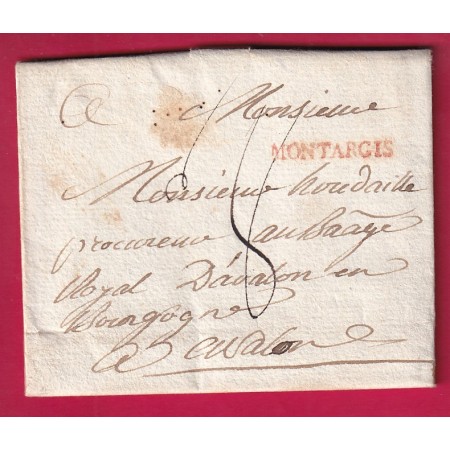 A Monsieur
MONTARGIS
Monsieur houdaille
procureur au Baage
Royal D'avalon en
Bourgogne
a avalon
8